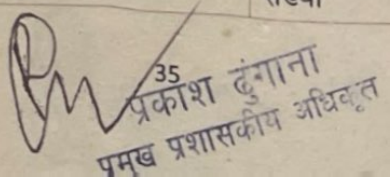 35
प्रकाश ढुंगाना
प्रमुख प्रशासकीय अधिकृत